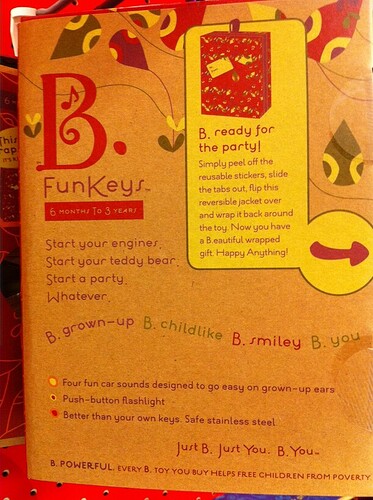 B.
FunKeys™
6 MONTHS TO 3 YEARS
Start your engines.
Start your teddy bear.
Start a party.
Whatever.
B. ready for
the party!
Simply peel off the
reusable stickers, slide
the tabs out, flip this
reversible jacket over
and wrap it back around
the toy. Now you have
a B.eautiful wrapped
gift. Happy Anything!
B. grown-up B. childlike B. smiley B. you
Four fun car sounds designed to go easy on grown-up ears
Push-button flashlight
Better than your own keys. Safe stainless steel
Just B. Just You. B. You™
B. POWERFUL. EVERY B. TOY YOU BUY HELPS FREE CHILDREN FROM POVERTY